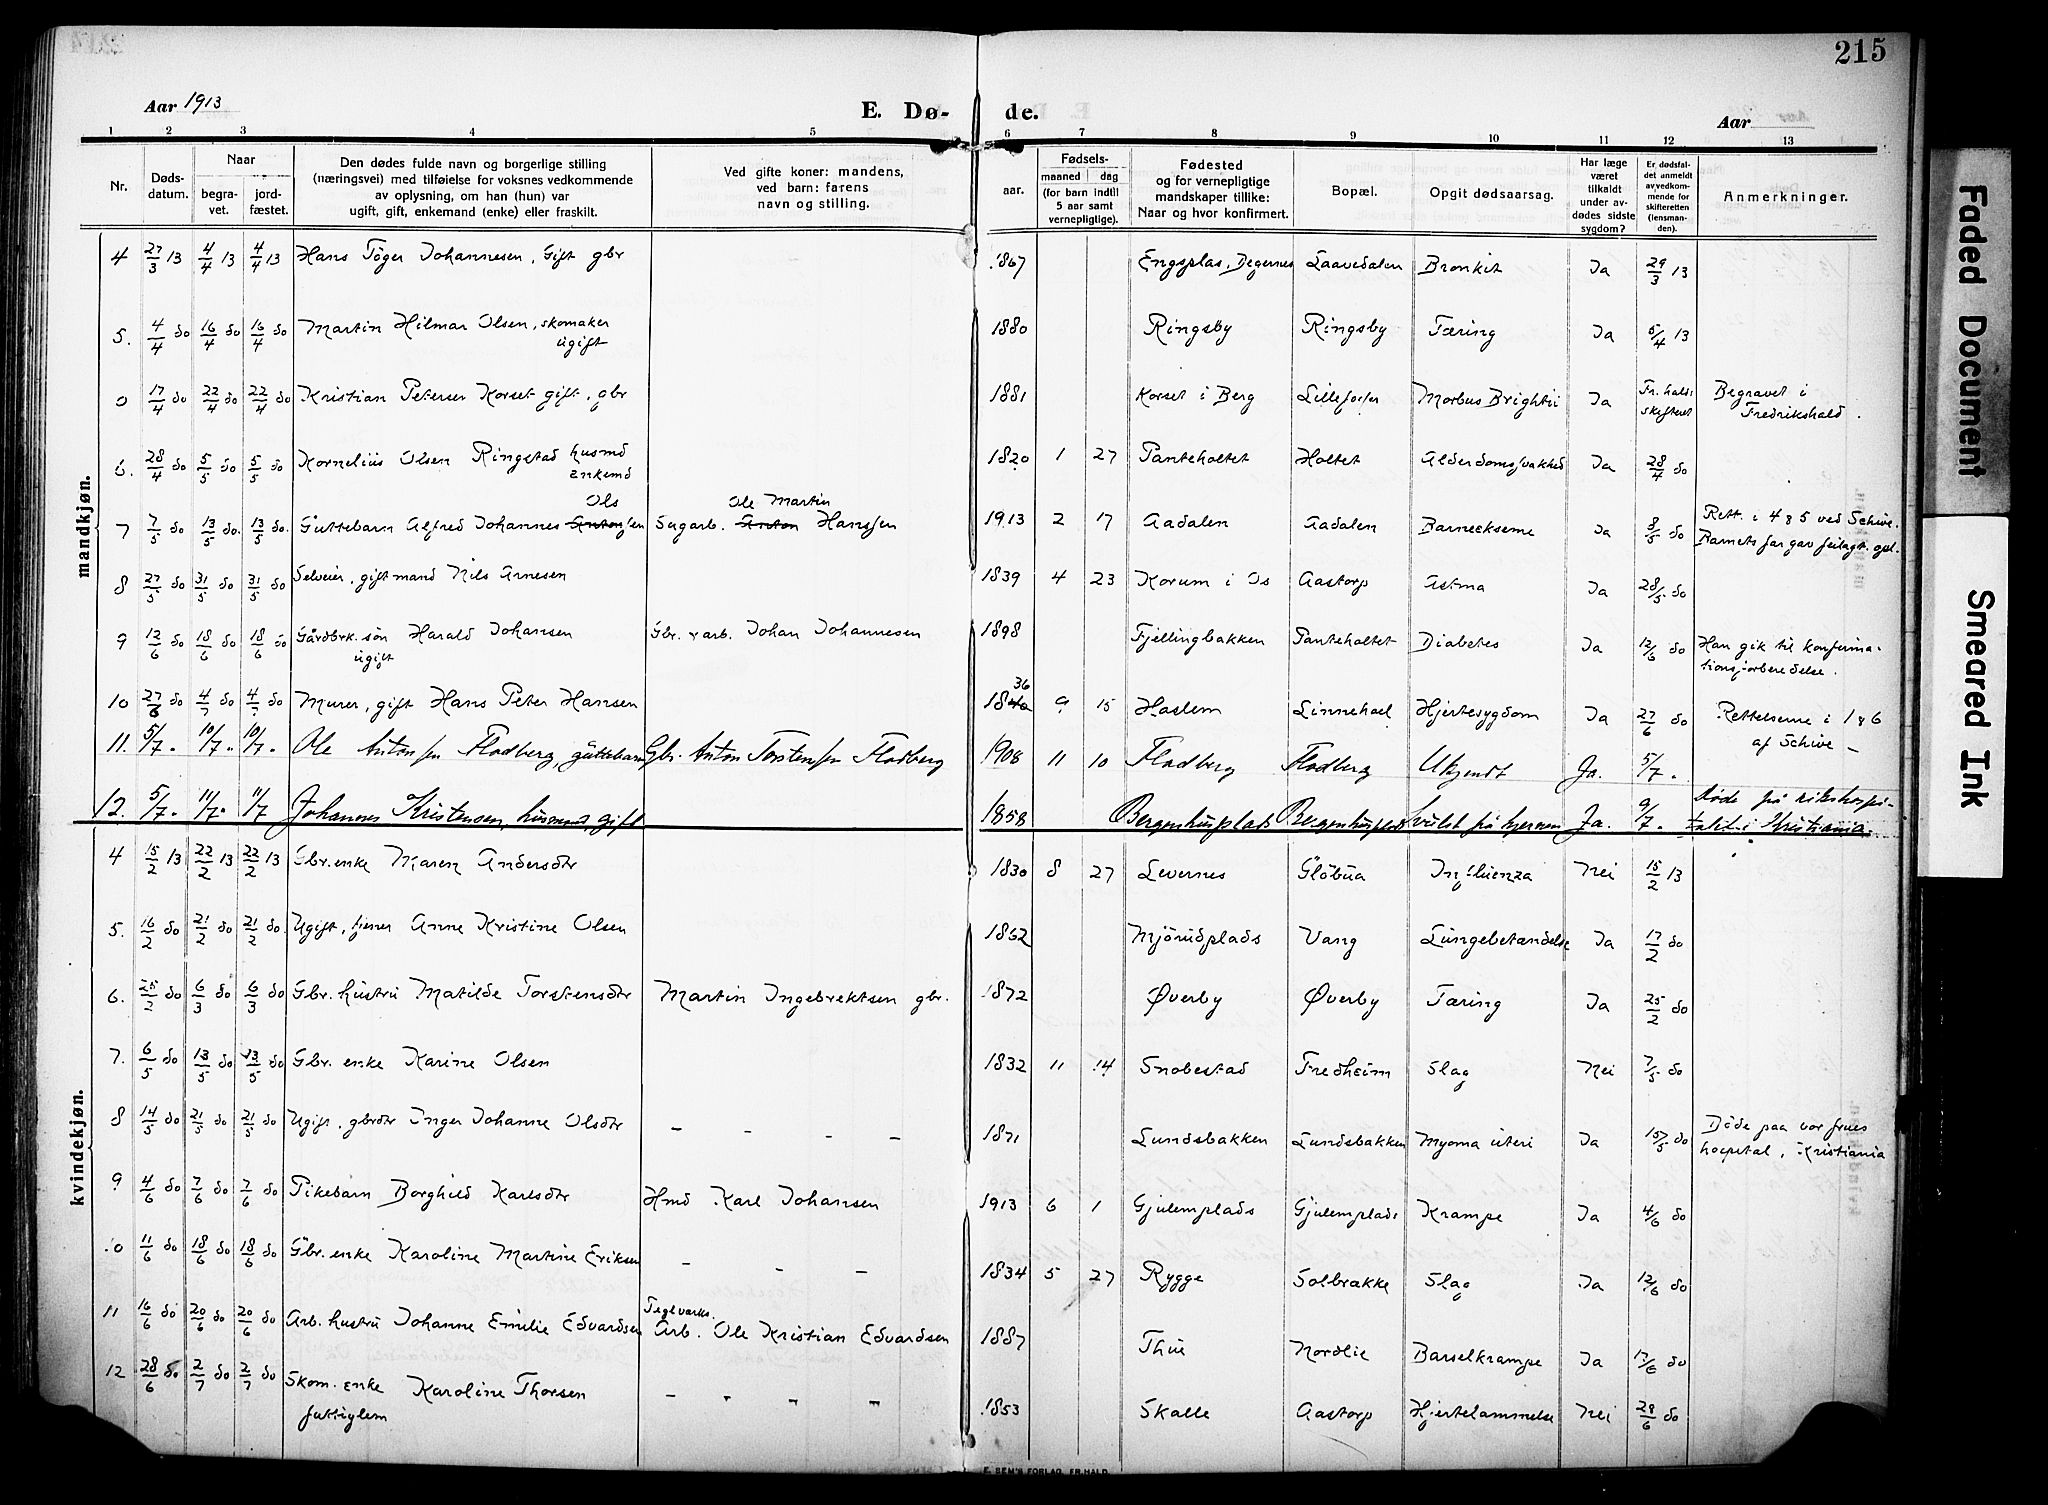 215
Aar 1913
E. Dø- de.
Aar
1 2 3 4 5 6 7 8 9 10 11 12 13
Nr.
Døds-datum.
Naar
begra-vet.
jord-fæstet.
Den dødes fulde navn og borgerlige stilling
(næringsvei) med tilføielse for voksnes vedkommende
av oplysning, om han (hun) var
ugift, gift, enkemand (enke) eller fraskilt.
Ved gifte koner: mandens,
ved barn: farens
navn og stilling.
Fødsels-
aar. maaned dag
(for barn indtil
5 aar samt
vernepligtige).
Fødested
og for vernepligtige
mandskaper tillike:
Naar og hvor konfirmert.
Bopæl.
Opgit dødsaarsag.
Har læge
været
tilkaldt
under av-
dødes sidste
sygdom?
Er dødsfal-
det anmeldt
av vedkom-
mende for
skifteretten
(lensman-
den).
Anmerkninger.
mandkjøn.
4 27/3 13 4/4 13 4/4 13 Hans Töger Johannesen, Gift gbr 1867 Engsplas, Degernes Laavedalen Bronkit Ja 29/3 13
5. 4/4 do 16/4 do 16/4 do Martin Hilmar Olsen, skomaker 1880 Ringsby Ringsby Tæring Ja 5/4 13
ugift
0 17/4 do 22/4 do 22/4 do Kristian Petersen Korset gift, gbr 1881 Korset i Berg Morbus Brightii Ja Fr. halds skifteret Begravet i
Fredrikshald.
6. 28/4 do 5/5 do 5/5 do Kornelius Olsen Ringstad husmd 1820 1 27 Panteholtet Holtet Alderdomssvakhed Ja 28/4 do
enkemd
Ols Ole Martin
7 7/5 do 13/5 do 13/5 do Guttebarn Alfred Johannes Antonsen Sagarb. Anton Hanssen 1913 2 17 Aadalen Aadalen Barneekseme Ja 8/5 do Rett. i 4 & 5 ved Schive.
Barnets far gav feilagt. opl.
8 27/5 do 31/5 do 31/5 do Selveier, gift mand Nils Arnesen 1839 4 23 Korum i Os Aastorp Astma Ja 28/5 do
9 12/6 do 18/6 do 18/6 do Gårdbrk. sön Harald Johansen Gbr. & arb. Johan Johannesen 1898 Fjellingbakken Panteholtet Diabetes Ja 12/6 do Han gik til konfirma-
ugift tionsforberedelse.
36
10 27/6 do 4/7 do 4/7 do Murer, gift Hans Peter Hansen 1840 9 15 Haslem Linnehael Hjertesygdom Ja 27/6 do Rettelserne i 1 & 6
af Schive —
11. 5/7 " 10/7 " 10/7 " Ole Antonsen Flodberg, guttebarn Gbr. Anton Torstensen Flodberg 1908 11 10 Flodberg Flodberg Ukjendt Ja. 5/7 "
12. 5/7 " 11/7 " 11/7 Johannes Kristensen, husmd, gift 1858 Bergenhusplads Bergenhusplads svulst på hjernen Ja. 9/7 " Döde på rikshospi-
talet i Kristiania.
kvindekjøn.
4 15/2 13 22/2 13 22/2 13 Gbr. enke Maren Andersdtr 1830 8 27 Levernes Glöbua Influenza Nei 15/2 13
5. 16/2 do 21/2 do 21/2 do Ugift, tjener Anne Kristine Olsen 1862 Mjörudplads Vang Lungebetændelse Ja 17/2 do
6. 25/2 do 6/3 do 6/3 do Gbr. hustru Matilde Torstensdtr Martin Ingebrektsen gbr. 1872 Øverby Øverby Tæring Ja 25/2 do
7. 6/5 do 13/5 do 13/5 do Gbr. enke Karine Olsen 1832 11 14 Snobestad Fredheim Slag Nei 7/5 do
8 14/5 do 21/5 do 21/5 do Ugift, gbrdtr Inger Johanne Olsdtr – – – – 1871 Lundsbakken Lundsbakken Myoma uteri Ja 15/5 do Döde paa vor frues
hospital, Kristiania
9 4/6 do 7/6 do 7/6 do Pikebarn Borghild Karlsdtr Hmd Karl Johansen 1913 6 1 Gjulemplads Gjulemplads Krampe Ja 4/6 do
10 11/6 do 18/6 do 18/6 do Gbr. enke Karoline Martine Eriksen – – – 1834 5 27 Rygge Solbrække Slag Ja 12/6 do
Teglverks.
11 16/6 do 20/6 do 20/6 do Arb. hustru Johanne Emilie Edvardsen Arb. Ole Kristian Edvardsen 1887 Thue Nordlie Barselkrampe Ja 17/6 do
12 28/6 do 2/7 do 2/7 do Skom. enke Karoline Thorsen – – – – 1853 Skalle Aastorp Hjertelammelse Nei 29/6 do
fattiglem
E. SEM'S FORLAG, FR.HALD.
Faded Document
Smeared Ink